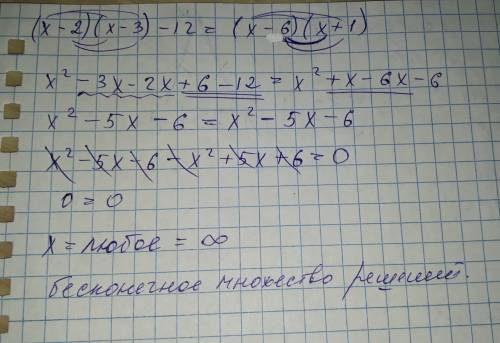 (x-2)(x-3)-12=(x-6)(x+1)
x²-3x-2x+6-12=x²+x-6x-6
x²-5x-6=x²-5x-6
x²-5x-6-x²+5x+6=0
0=0
x=любое=∞
бесконечное множество решений.